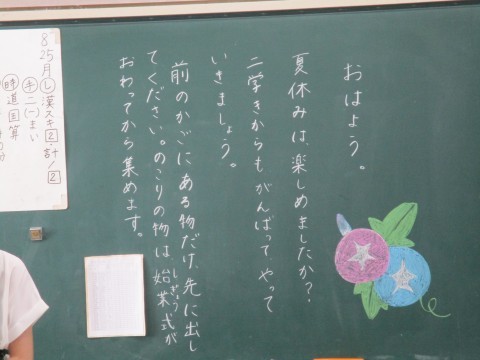 おはよう。
夏休みは、楽しめましたか?
二学きからもがんばって、やって
いきましょう。
前のかごにある物だけ、先に出し
てください。のこりの物は、始業式が
しぎょう
おわってから集めます。
8
25
月
し 漢スキ2・計ノ2
手 二(一)まい
時 道 国 算